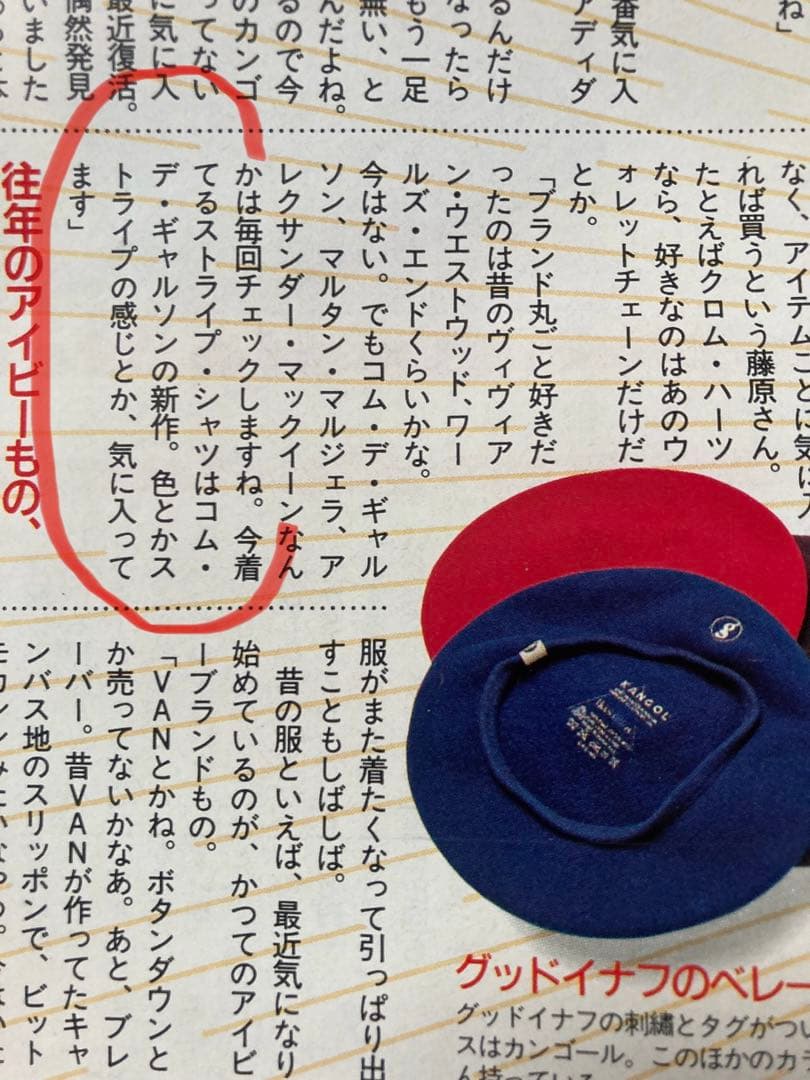 ね」
番気に入
アディダ
るんだけ
なったら
もう一足
無い、と
んだよね。
るので今
のカンゴ
ってない
に気に入
最近復活。
偶然発見
いました
なく、アイテムごとに気に入
れば買うという藤原さん。
たとえばクロム・ハーツ
なら、好きなのはあのウ
ォレットチェーンだけだ
とか。
「ブランド丸ごと好きだ
ったのは昔のヴィヴィア
ン・ウエストウッド、ワー
ルズ・エンドくらいかな。
今はない。でもコム・デ・ギャル
ソン、マルタン・マルジェラ、ア
レクサンダー・マックイーンなん
かは毎回チェックしますね。今着
てるストライプ・シャツはコム・
デ・ギャルソンの新作。色とかス
トライプの感じとか、気に入って
ます」
往年のアイビーもの、
服がまた着たくなって引っぱり出
すこともしばしば。
昔の服といえば、最近気になり
始めているのが、かつてのアイビ
ーブランドもの。
「VANとかね。ボタンダウンと
か売ってないかなあ。あと、ブレ
ーバー。昔VANが作ってたキャ
ンバス地のスリッポンで、ビット
KANGOL
グッドイナフのベレー
グッドイナフの刺繡とタグがつい
スはカンゴール。このほかのカラ
ん持っている